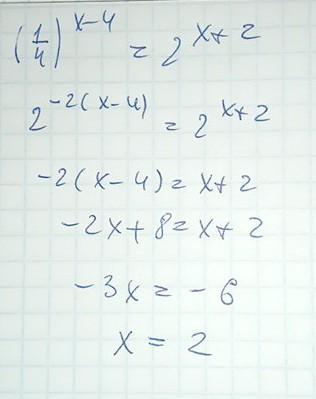 (1/4)^(x-4) = 2^(x+2)
2^(-2(x-4)) = 2^(x+2)
-2(x-4) = x+2
-2x+8 = x+2
-3x = -6
x = 2